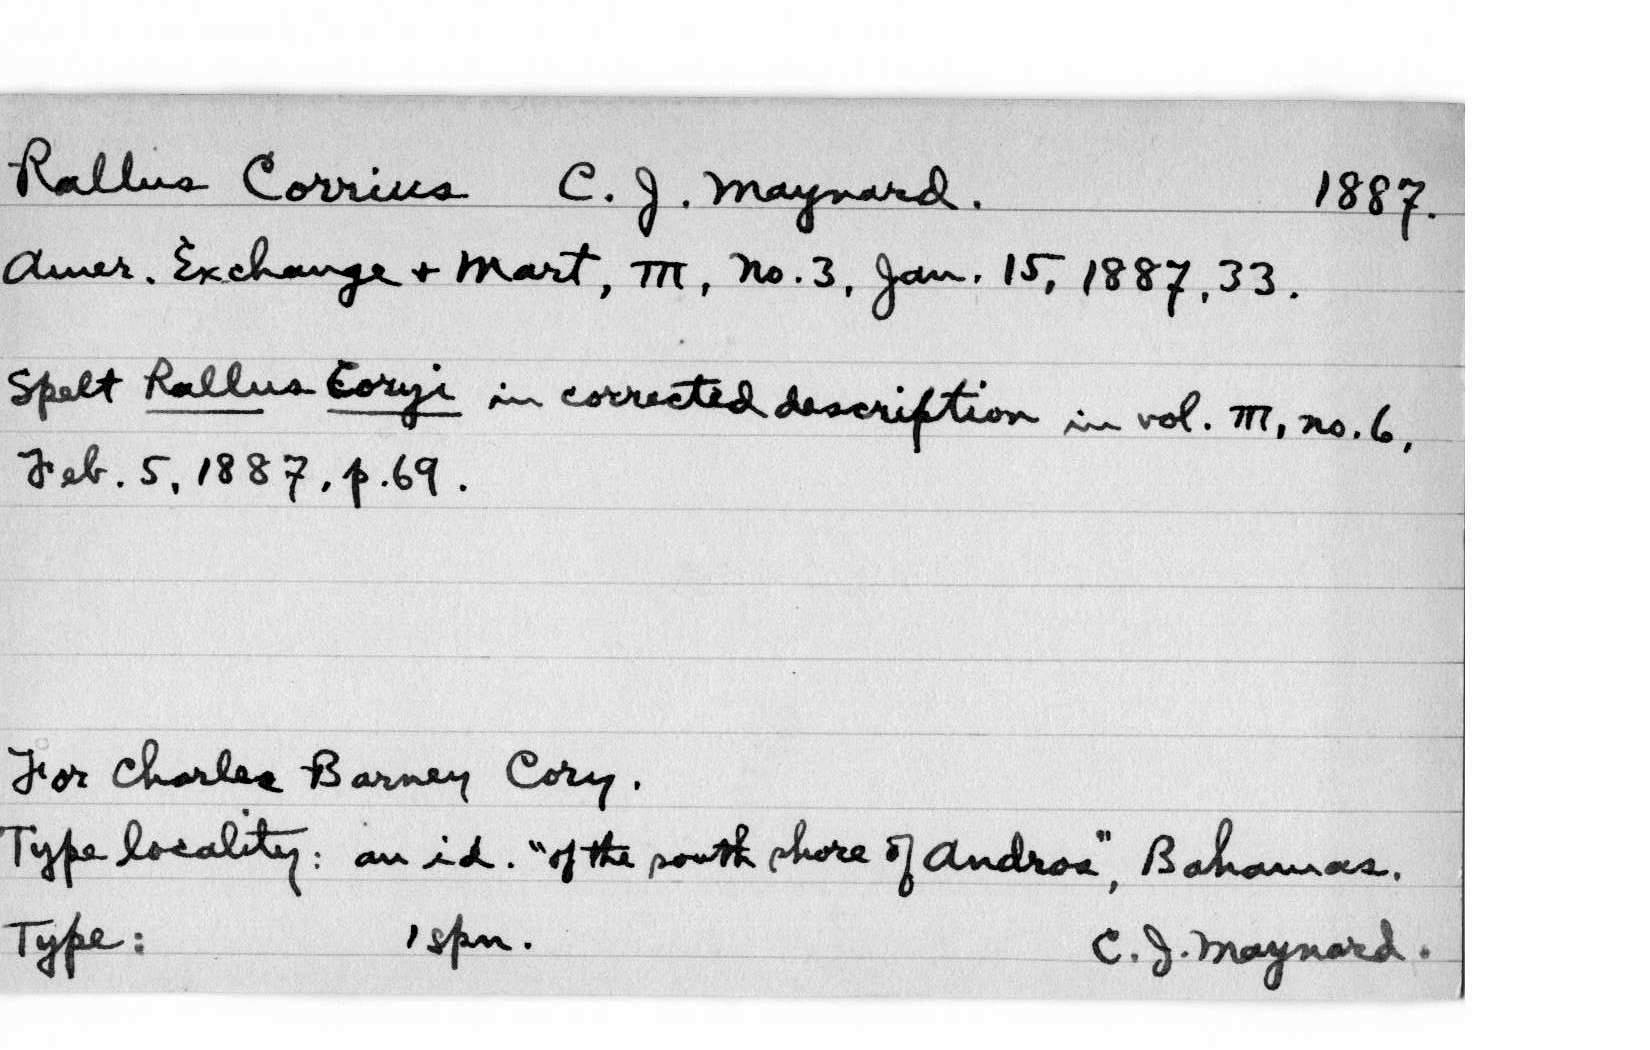 Rallus Corrius C. J. Maynard. 1887.
Amer. Exchange + Mart, III, No. 3, Jan. 15, 1887, 33.
Spelt Rallus Coryi in corrected description in vol. III, no. 6,
Feb. 5, 1887, p. 69.
For Charles Barney Cory.
Type locality: an id. "of the south shore of Andros", Bahamas.
Type: 1 spn. C. J. Maynard.